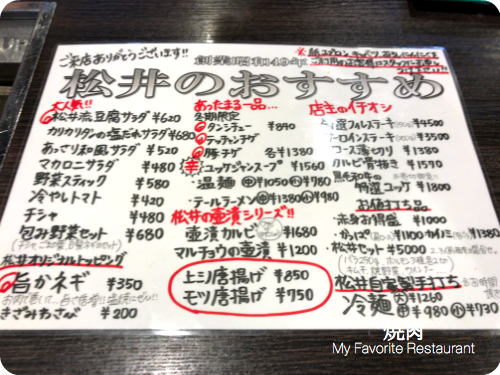 ご来店ありがとうございます!!
創業昭和49年
松井のおすすめ
大人気!!
松井流豆腐サラダ ¥620
カリカリタンの塩だれサラダ ¥680
あっさり和風サラダ ¥520
マカロニサラダ ¥480
野菜スティック ¥580
冷やしトマト ¥420
チシャ ¥480
包み野菜セット ¥680
松井オリジナルトッピング
旨かネギ ¥350
きざみわさび ¥200
あったまる一品…
冬期限定
タンシチュー ¥840
テッチャンチゲ
豚チゲ 各¥1380
辛 ユッケジャンスープ ¥1560
温麺 中¥1050 小¥980
テールラーメン
松井の壷漬シリーズ!!
壷漬カルビ ¥1680
マルチョウの壷漬 ¥1200
上ミノ唐揚げ ¥850
モツ唐揚げ ¥750
店主のイチオシ
特選フィレステーキ ¥4500
サーロインステーキ ¥3500
コース薄切り ¥1380
カルビ骨抜き ¥1510
黒毛和牛の
特選ユッケ ¥1800
お値打ち品
赤身お得盛 ¥1000
松井セット ¥5000
松井自家製手打ち
冷麺 大¥1260 中¥980 小¥730
焼肉
My Favorite Restaurant